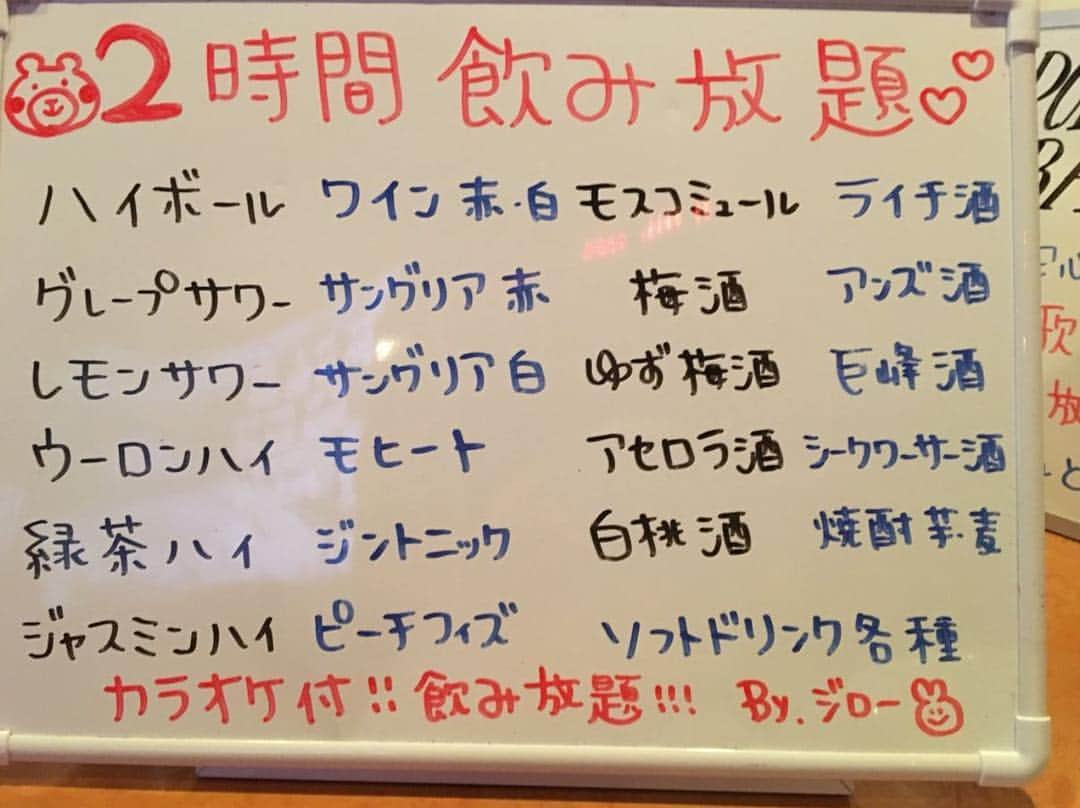 2時間飲み放題
ハイボール ワイン 赤・白 モスコミュール ライチ酒
グレープサワー サングリア 赤 梅酒 アンズ酒
レモンサワー サングリア 白 ゆず梅酒 巨峰酒
ウーロンハイ モヒート アセロラ酒 シークワーサー酒
緑茶ハイ ジントニック 白桃酒 焼酎 芋・麦
ジャスミンハイ ピーチフィズ ソフトドリンク各種
カラオケ付!! 飲み放題!!! By.ジロー